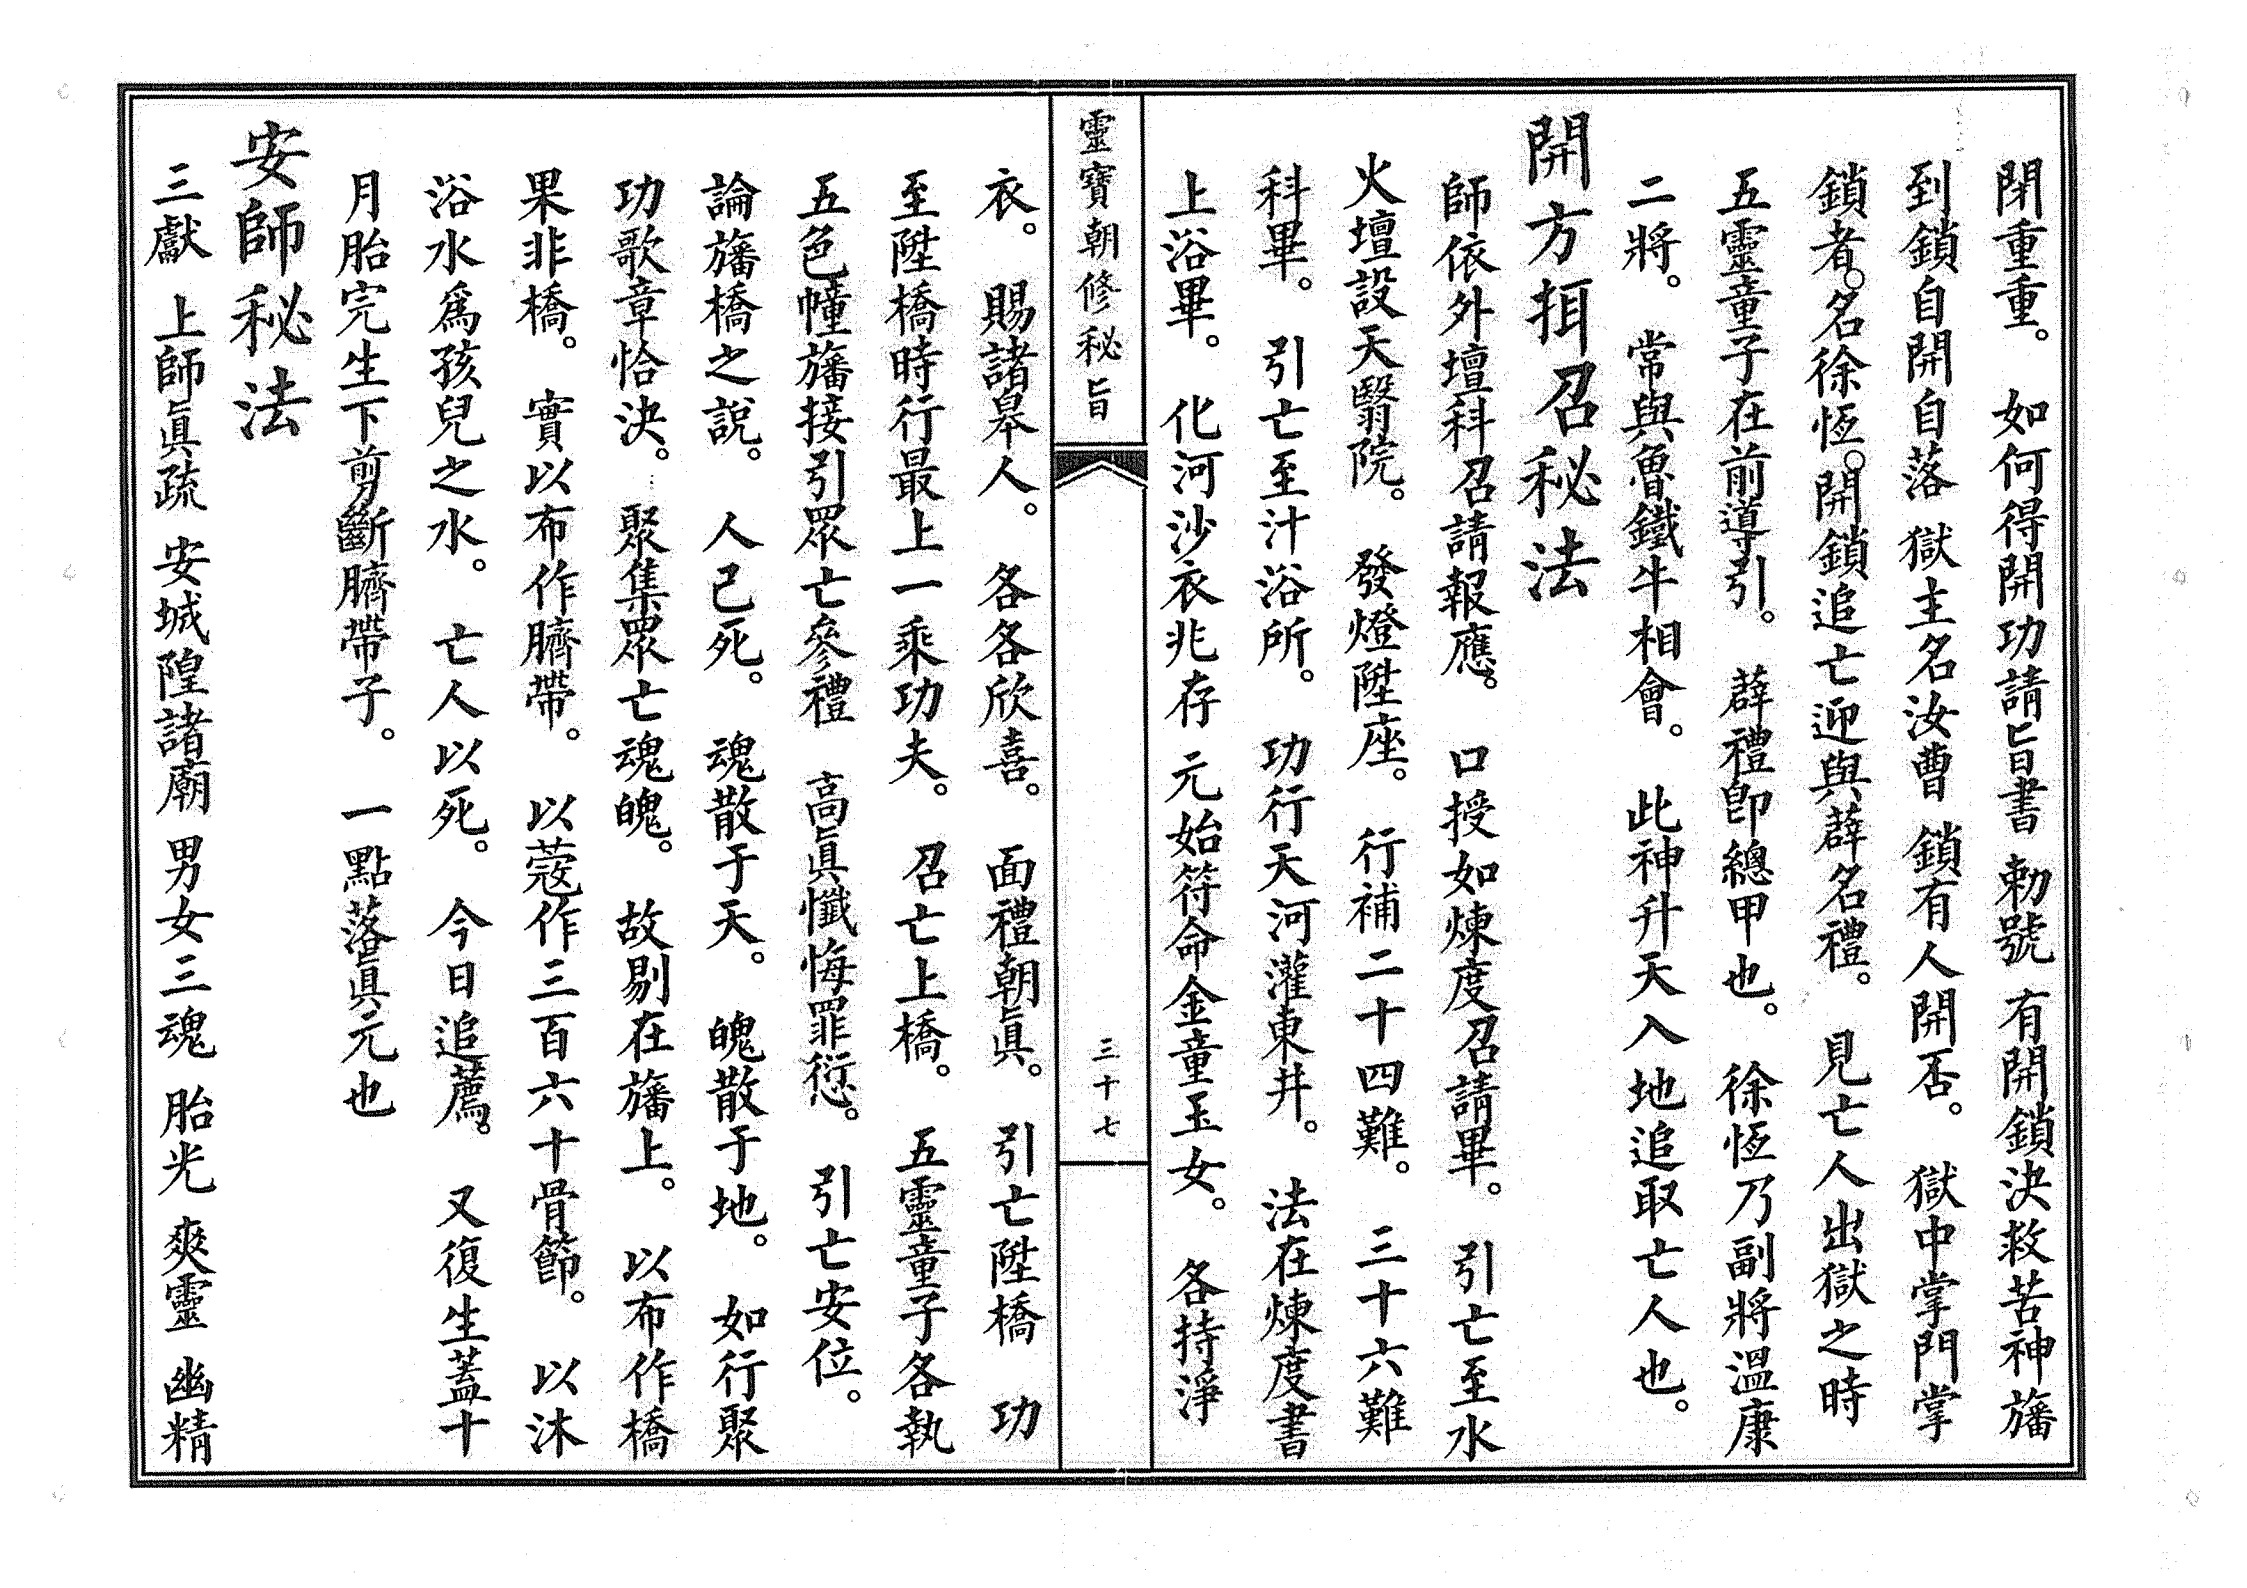 閉重重。如何得開功請旨書 勅號 有開鎖決救苦神旛
到鎖自開自落 獄主名汝曹 鎖有人開否。獄中掌門掌
鎖者。名徐恆。開鎖追亡迎與薜名禮。見亡人出獄之時
五靈童子在前導引。薜禮卽總甲也。徐恆乃副將溫康
二將。常與魯鐵牛相會。此神升天入地追取亡人也。
開方抇召秘法
師依外壇科召請報應。口授如煉度召請畢。引亡至水
火壇設天醫院。發燈陞座。行補二十四難。三十六難
科畢。引亡至汁浴所。功行天河灌東井。法在煉度書
上浴畢。化河沙衣兆存 元始符命金童玉女。各持淨
靈寶朝修秘旨
三十七
衣。賜諸皋人。各各欣喜。面禮朝眞。引亡陞橋 功
至陞橋時行最上一乘功夫。召亡上橋。五靈童子各執
五色幢旛接引眾亡參禮 高眞懺悔罪愆。引亡安位。
論旛橋之說。人己死。魂散于天。魄散于地。如行聚
功歌章恰決。聚集眾亡魂魄。故剔在旛上。以布作橋
果非橋。實以布作臍帶。以蔻作三百六十骨節。以沐
浴水爲孩兒之水。亡人以死。今日追薦。又復生蓋十
月胎完生下剪斷臍帶子。一點落眞元也
安師秘法
三獻 上師眞疏 安城隍諸廟 男女三魂 胎光 爽靈 幽精